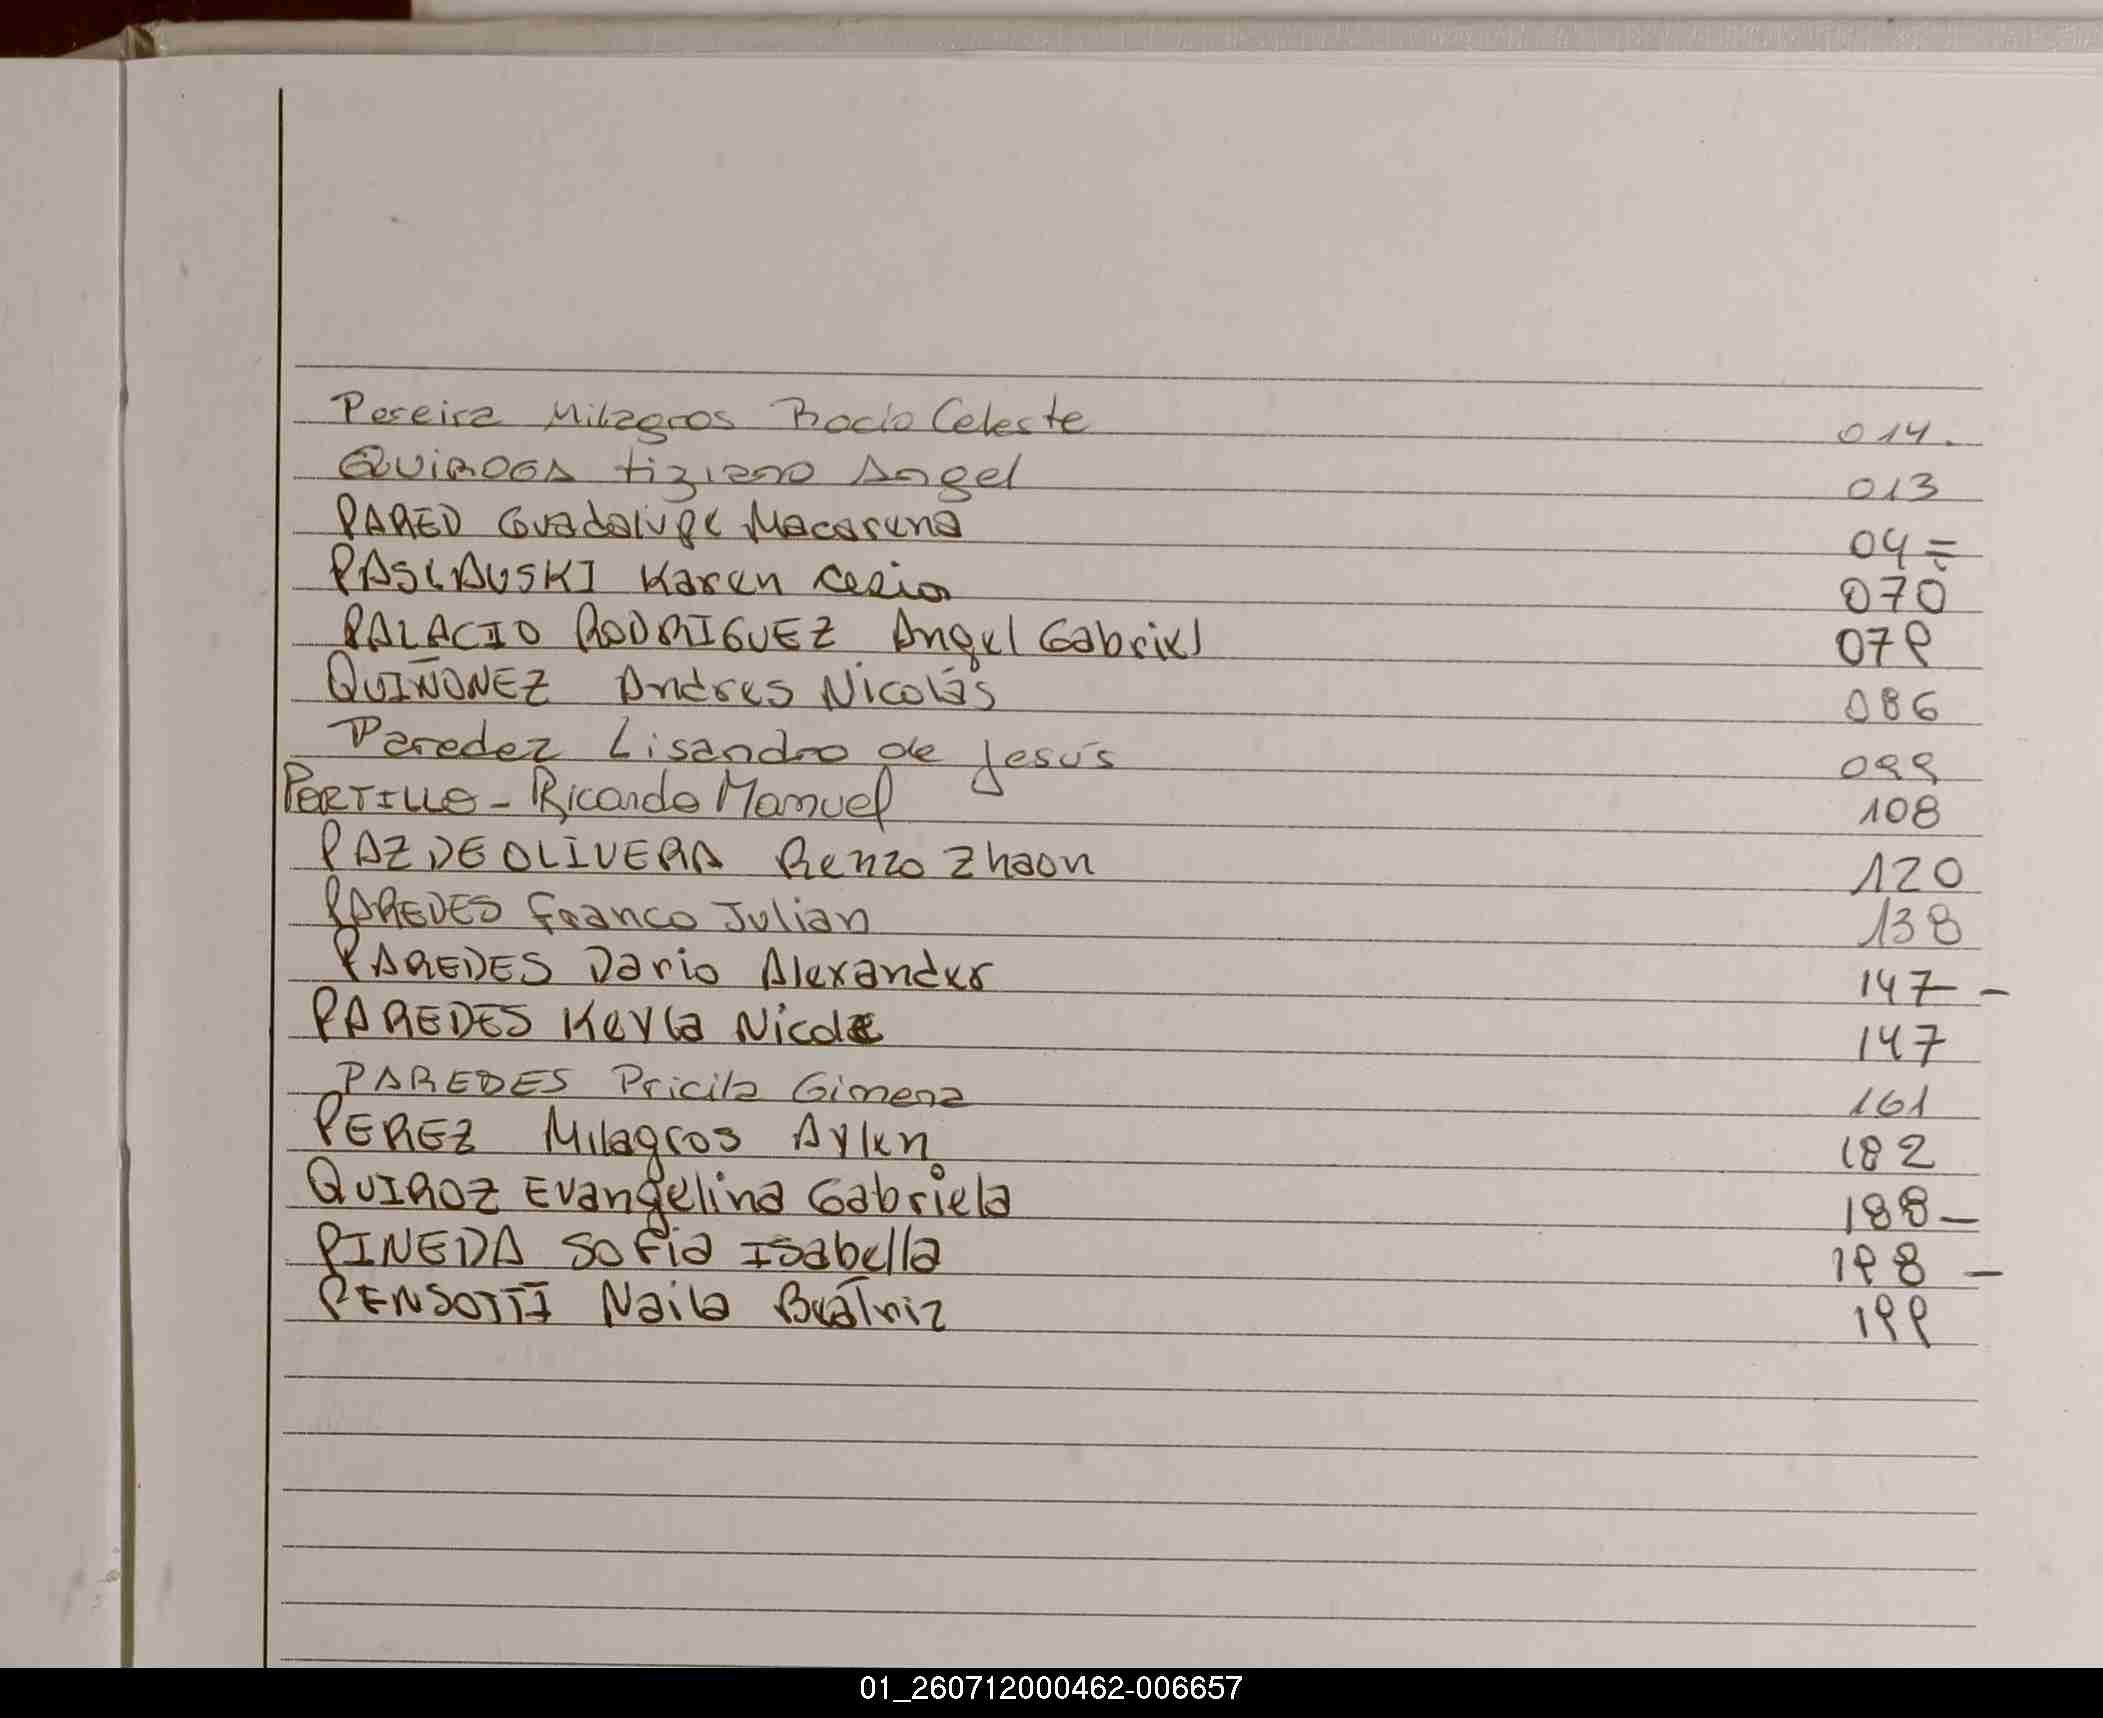 Pereira Milagros Rocío Celeste 014.
QUIROGA tiziano Angel 013
PARED Guadalupe Macarena 04=
PASLAUSKI Karen 070
PALACIO RODRIGUEZ Angel Gabriel 079
QUIÑONEZ Andres Nicolás 086
Paredez Lisandro de Jesús 099
PORTILLO - Ricardo Manuel 108
PAZ DE OLIVERA Renzo Zhaon 120
PAREDES Franco Julian 138
PAREDES Dario Alexander 147 -
PAREDES Keyla Nicole 147
PAREDES Pricila Gimena 161
PEREZ Milagros Aylen 182
QUIROZ Evangelina Gabriela 188 -
PINEDA Sofia Isabella 198 -
PENSOTTI Naila Beatriz 199
01_260712000462-006657